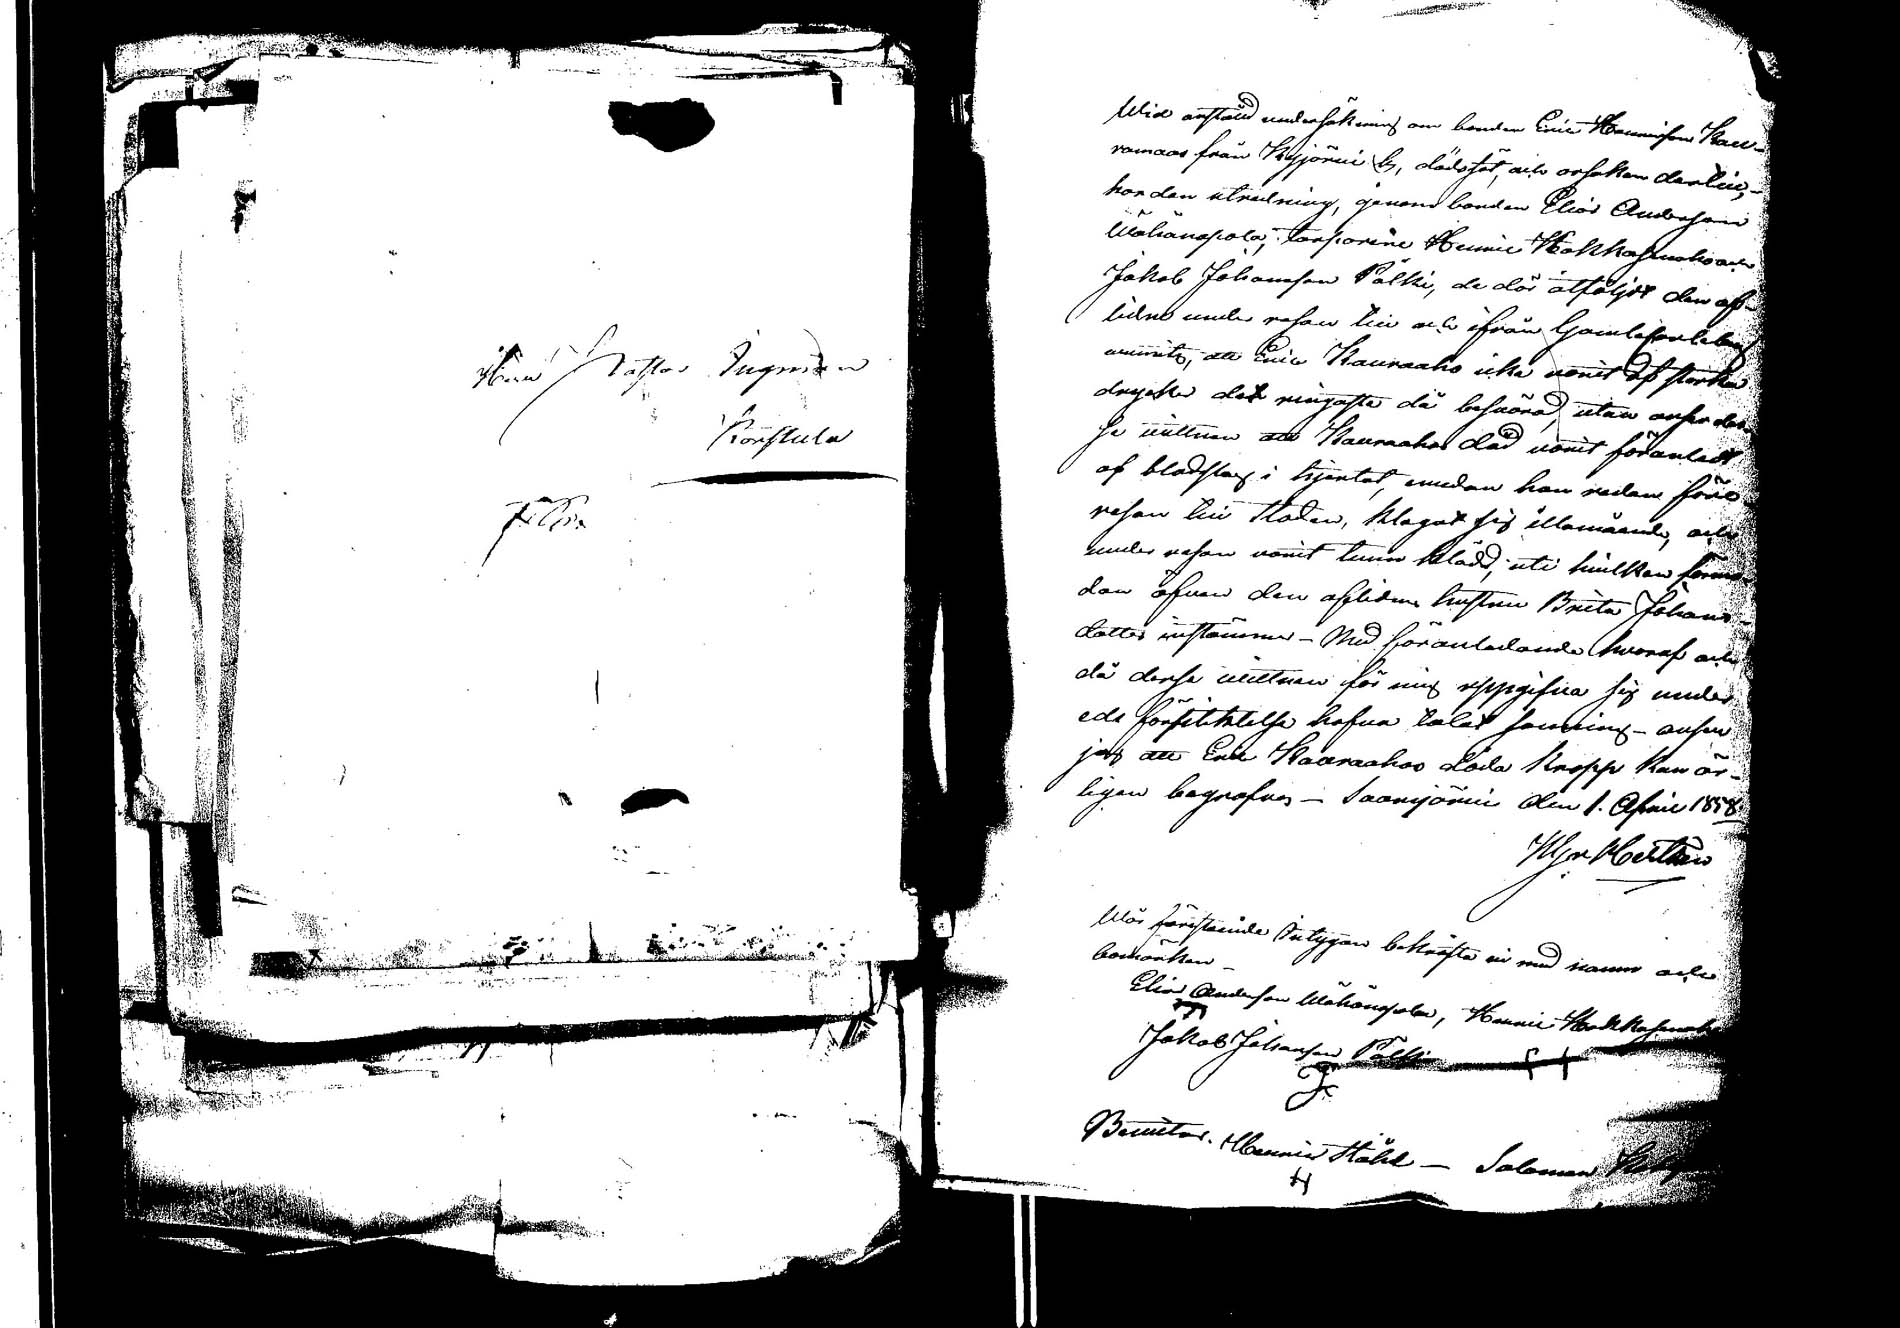 Herr Pastor Ingman
Karstula
Wid anstäld undersökning om bonden Eric Hennricson Kau-
ramaas från Kyjärvi by, dödssät, och orsaken dertill,
har den utredning, genom bonden Elias Anderson
Wähänopola, torparene Hennric Hakkasenaho och
Jakob Johansson Pölki, de der åtföljt den af-
lidne under resan till och ifrån Gamlakarleby
vunnits, att Eric Kauraaho icke varit af starka
drycker det ringaste då besvärad, utan anse des-
se vittnen att Kauraahos död varit föranledt
af blodslag i hjertat, emedan han redan före
resan till staden, klagat sig illamående, och
under resan varit tunn klädd; uti hvilken förmo-
dan äfven den aflidnes hustru Brita Johans-
dotter instämmer – Med föranledande hvaraf och
då desse vittnen för mig uppgifva sig under
eds förpliktelse hafva talat sanning – anser
jag att Eric Kauraahos döda kropp kan är-
ligen begrafvas – Saarijärvi den 1. April 1858
Wår förestående intygan bekräfta vi med namn och
bomärken
Elias Anderson Wähänopola, Hennric Hakkasenaho
Jakob Johansson Pölki
Bevittnar. Hennric Ståhl — Salomon